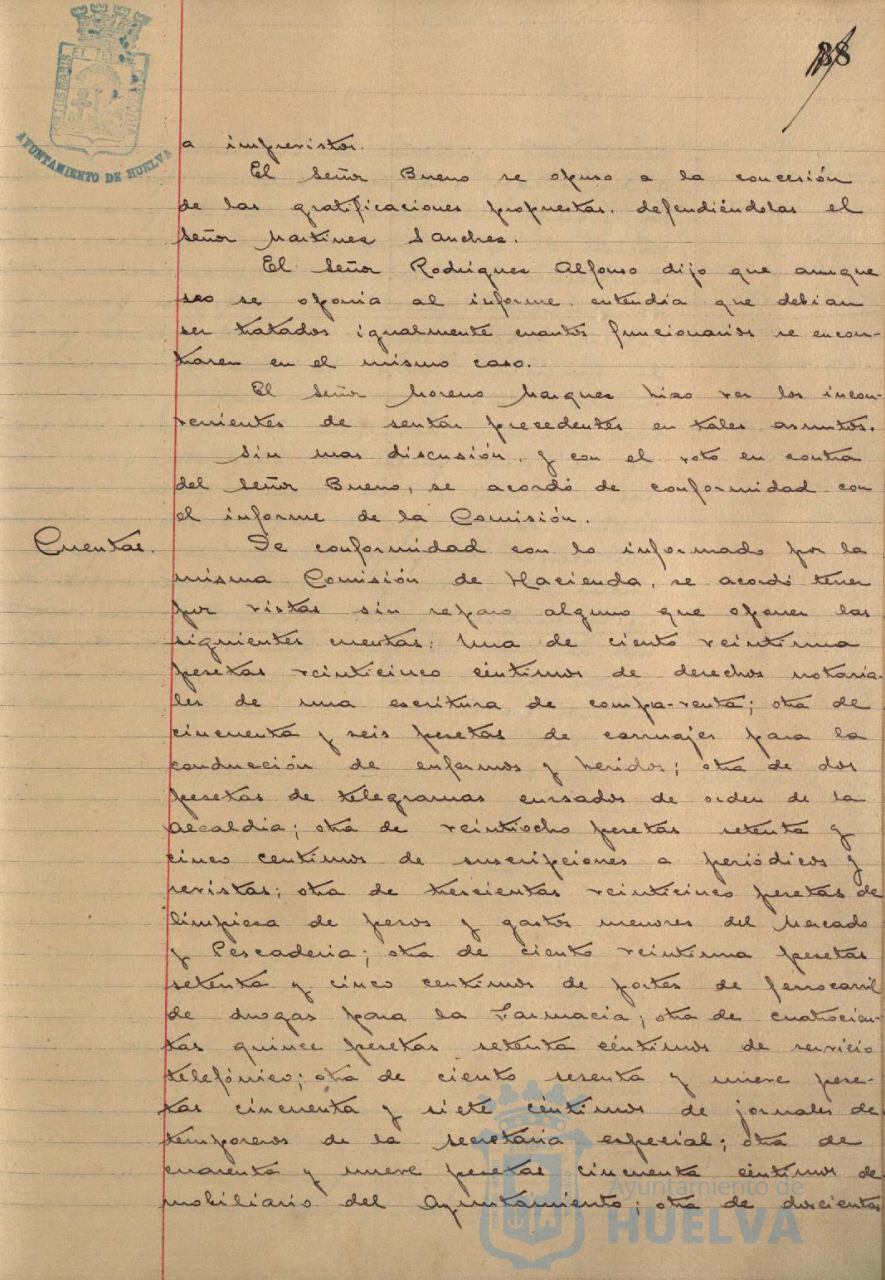 38
AYUNTAMIENTO DE HUELVA
a imprevistos.
El Señor Bueno se opuso a la concesión
de las gratificaciones propuestas, defendiéndolas el
Señor Martinez Sanchez.
El Señor Rodriguez Alfonso dijo que aunque
se oponia al informe, entendia que debian
ser tratados igualmente cuantos funcionarios se encon-
traren en el mismo caso.
El Señor Moreno Marquez hizo ver los incon-
venientes de sentar precedentes en tales asuntos.
Sin mas discusión, y con el voto en contra
del Señor Bueno, se acordó de conformidad con
el informe de la Comisión.
Cuentas.
De conformidad con lo informado por la
misma Comisión de Hacienda, se acordó tener
por vistas sin reparo alguno que oponer las
siguientes cuentas: Una de ciento veintiuna
pesetas veinticinco céntimos de derechos notaria-
les de una escritura de compra-venta; otra de
cincuenta y seis pesetas de carruajes para la
conducción de enfermos y heridos; otra de dos
pesetas de telegramas cursados de orden de la
Alcaldia; otra de veintiocho pesetas setenta y
cinco centimos de suscripciones a periódicos y
revistas; otra de trescientas veinticinco pesetas de
limpieza de pesos y gastos menores del Mercado
y Pescaderia; otra de ciento veintiuna pesetas
setenta y cinco centimos de portes de ferrocarril
de drogas para la Farmacia; otra de cuatrocien-
tas quince pesetas setenta céntimos de servicio
telefónico; otra de ciento sesenta y nueve pese-
tas cincuenta y siete céntimos de jornales de
temporeros de la secretaria especial; otra de
cuarenta y nueve pesetas cincuenta céntimos de
mobiliario del Ayuntamiento; otra de doscientas
Ayuntamiento de
HUELVA